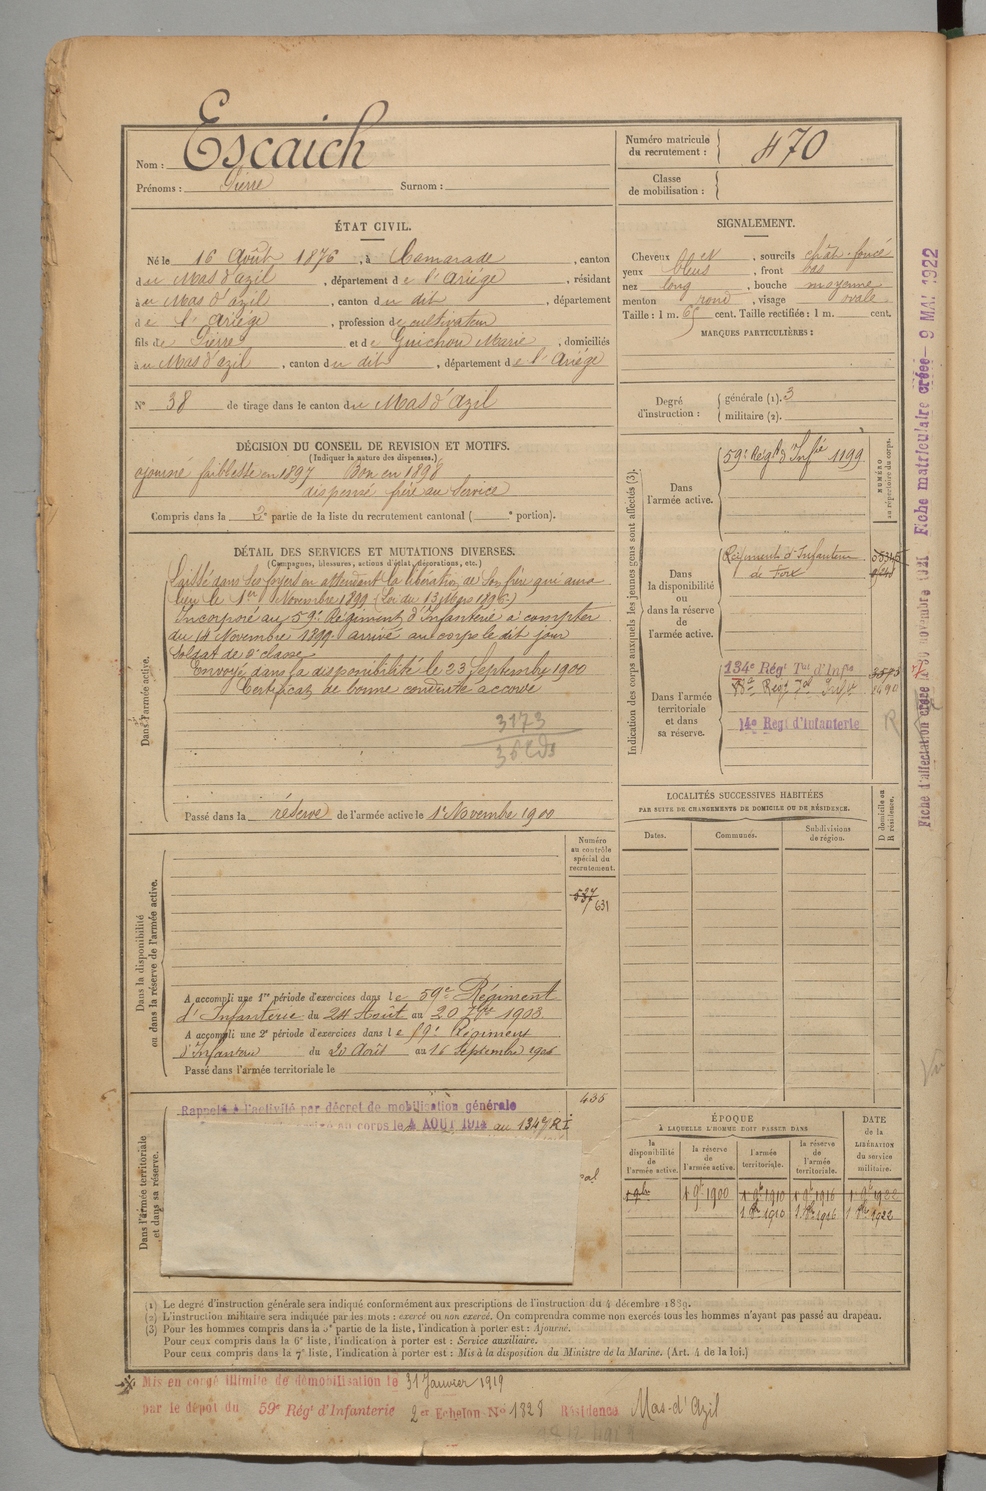 Nom : Escaich
Prénoms : Pierre Surnom :
Numéro matricule du recrutement : 470
Classe de mobilisation :
ÉTAT CIVIL.
Né le 16 Août 1876, à Camarade, canton
du Mas d'azil, département de l'Ariège, résidant
à u Mas d'azil, canton du dit, département
de l'Ariège, profession de cultivateur
fils de Pierre et de Guichou Marie, domiciliés
à u Mas d'azil, canton du dit, département de l'Ariège
N° 38 de tirage dans le canton du Mas d'Azil
DÉCISION DU CONSEIL DE REVISION ET MOTIFS.
(Indiquer la nature des dispenses.)
ajourné faiblesse en 1897 Bon en 1898
dispensé frère au service
Compris dans la 2e partie de la liste du recrutement cantonal ( e portion).
DÉTAIL DES SERVICES ET MUTATIONS DIVERSES.
(Campagnes, blessures, actions d'éclat, décorations, etc.)
Dans l'armée active.
Laissé dans ses foyers en attendant la libération de son frère qui aura
lieu le 1er Novembre 1899 (Loi du 13 Mars 1896.)
Incorporé au 59e Régiment d'Infanterie à compter
du 14 Novembre 1899 arrivé au corps le dit jour
soldat de 2e classe
Envoyé dans la disponibilité le 23 Septembre 1900
Certificat de bonne conduite accordé
3173
Passé dans la réserve de l'armée active le 1er Novembre 1900
Numéro au contrôle spécial du recrutement.
631
Dans la disponibilité
ou dans la réserve de l'armée active.
A accompli une 1re période d'exercices dans le 59e Régiment
d'Infanterie du 24 Août au 20 7bre 1903
A accompli une 2e période d'exercices dans le 59e Régiment
d'Infanterie du 20 Août au 16 Septembre 1906
Passé dans l'armée territoriale le
Dans l'armée territoriale
et dans sa réserve.
Rappelé à l'activité par décret de mobilisation générale
au corps le 4 AOUT 1914 au 134e R I
435
SIGNALEMENT.
Cheveux et sourcils chât. foncé
yeux bleus, front bas
nez long, bouche moyenne
menton rond, visage ovale
Taille : 1 m. 65 cent. Taille rectifiée : 1 m. cent.
MARQUES PARTICULIÈRES :
Degré d'instruction : générale (1). 3
militaire (2).
Indication des corps auxquels les jeunes gens sont affectés (3).
NUMÉRO au répertoire du corps.
Dans l'armée active. 59e Régt d'Infie 1199
Dans la disponibilité ou dans la réserve de l'armée active. Régiment d'Infanterie
de Foix
Dans l'armée territoriale et dans sa réserve. 134e Régt Tal d'Infie
1490
14e Regt d'Infanterie
R
LOCALITÉS SUCCESSIVES HABITÉES
PAR SUITE DE CHANGEMENTS DE DOMICILE OU DE RÉSIDENCE.
Dates. Communes. Subdivisions de région. D domicile ou R résidence.
ÉPOQUE
À LAQUELLE L'HOMME DOIT PASSER DANS
la disponibilité de l'armée active. la réserve de l'armée active. l'armée territoriale. la réserve de l'armée territoriale.
DATE de la LIBÉRATION du service militaire.
1 9bre 1 9bre 1900 1 9bre 1910 1 9bre 1916 1 9bre 1922
1 8bre 1910 1 8bre 1916 1 8bre 1922
Fiche d'affectation créée le 30 novembre 1921 Fiche matriculaire créée 9 MAI 1922
(1) Le degré d'instruction générale sera indiqué conformément aux prescriptions de l'instruction du 4 décembre 1889.
(2) L'instruction militaire sera indiquée par les mots : exercé ou non exercé. On comprendra comme non exercés tous les hommes n'ayant pas passé au drapeau.
(3) Pour les hommes compris dans la 5e partie de la liste, l'indication à porter est : Ajourné.
Pour ceux compris dans la 6e liste, l'indication à porter est : Service auxiliaire.
Pour ceux compris dans la 7e liste, l'indication à porter est : Mis à la disposition du Ministre de la Marine. (Art. 4 de la loi.)
Mis en congé illimité de démobilisation le 31 Janvier 1919
par le dépôt du 59e Régt d'Infanterie 2er Echelon N° 1328 Résidence Mas-d'Azil